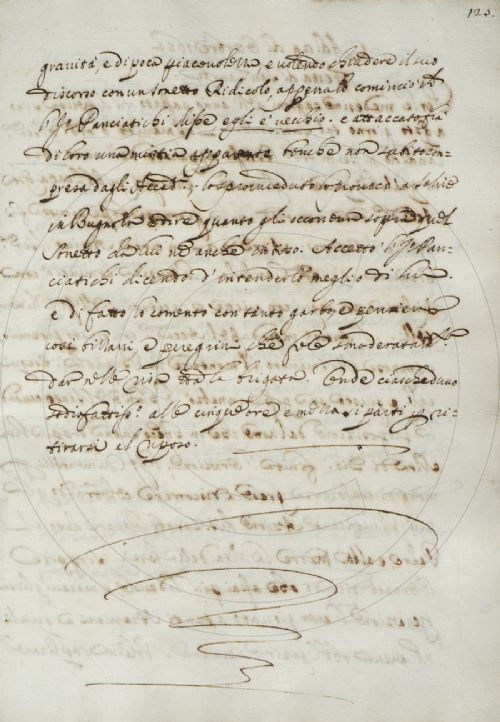 125.
gravità, e di poca piacevolezza e volendo chiudere il suo
discorso con un sonetto Ridicolo, appena lo cominciò che
il Sr. Panciatichi disse egli è vecchio. e attaccatasi fra
di loro una mischia apparente benche non subito com-
presa dagli Accad.i lo provocò a salire
in Bugnola e dire quanto gli occorreva sopra quel
sonetto da lui nè anche inteso. Accettò il Sr. Pan-
ciatichi dicendo d'intenderlo meglio di lui
e di fatto lo comentò con tanto garbo, e pensieri
così brillanti, e peregrini che fece smoderatam.te
dar nelle risa tutta la brigata. Onde ciascheduno
sodisfattiss.o alle cinque ore e mezza si partì p ri-
tirarsi al riposo.